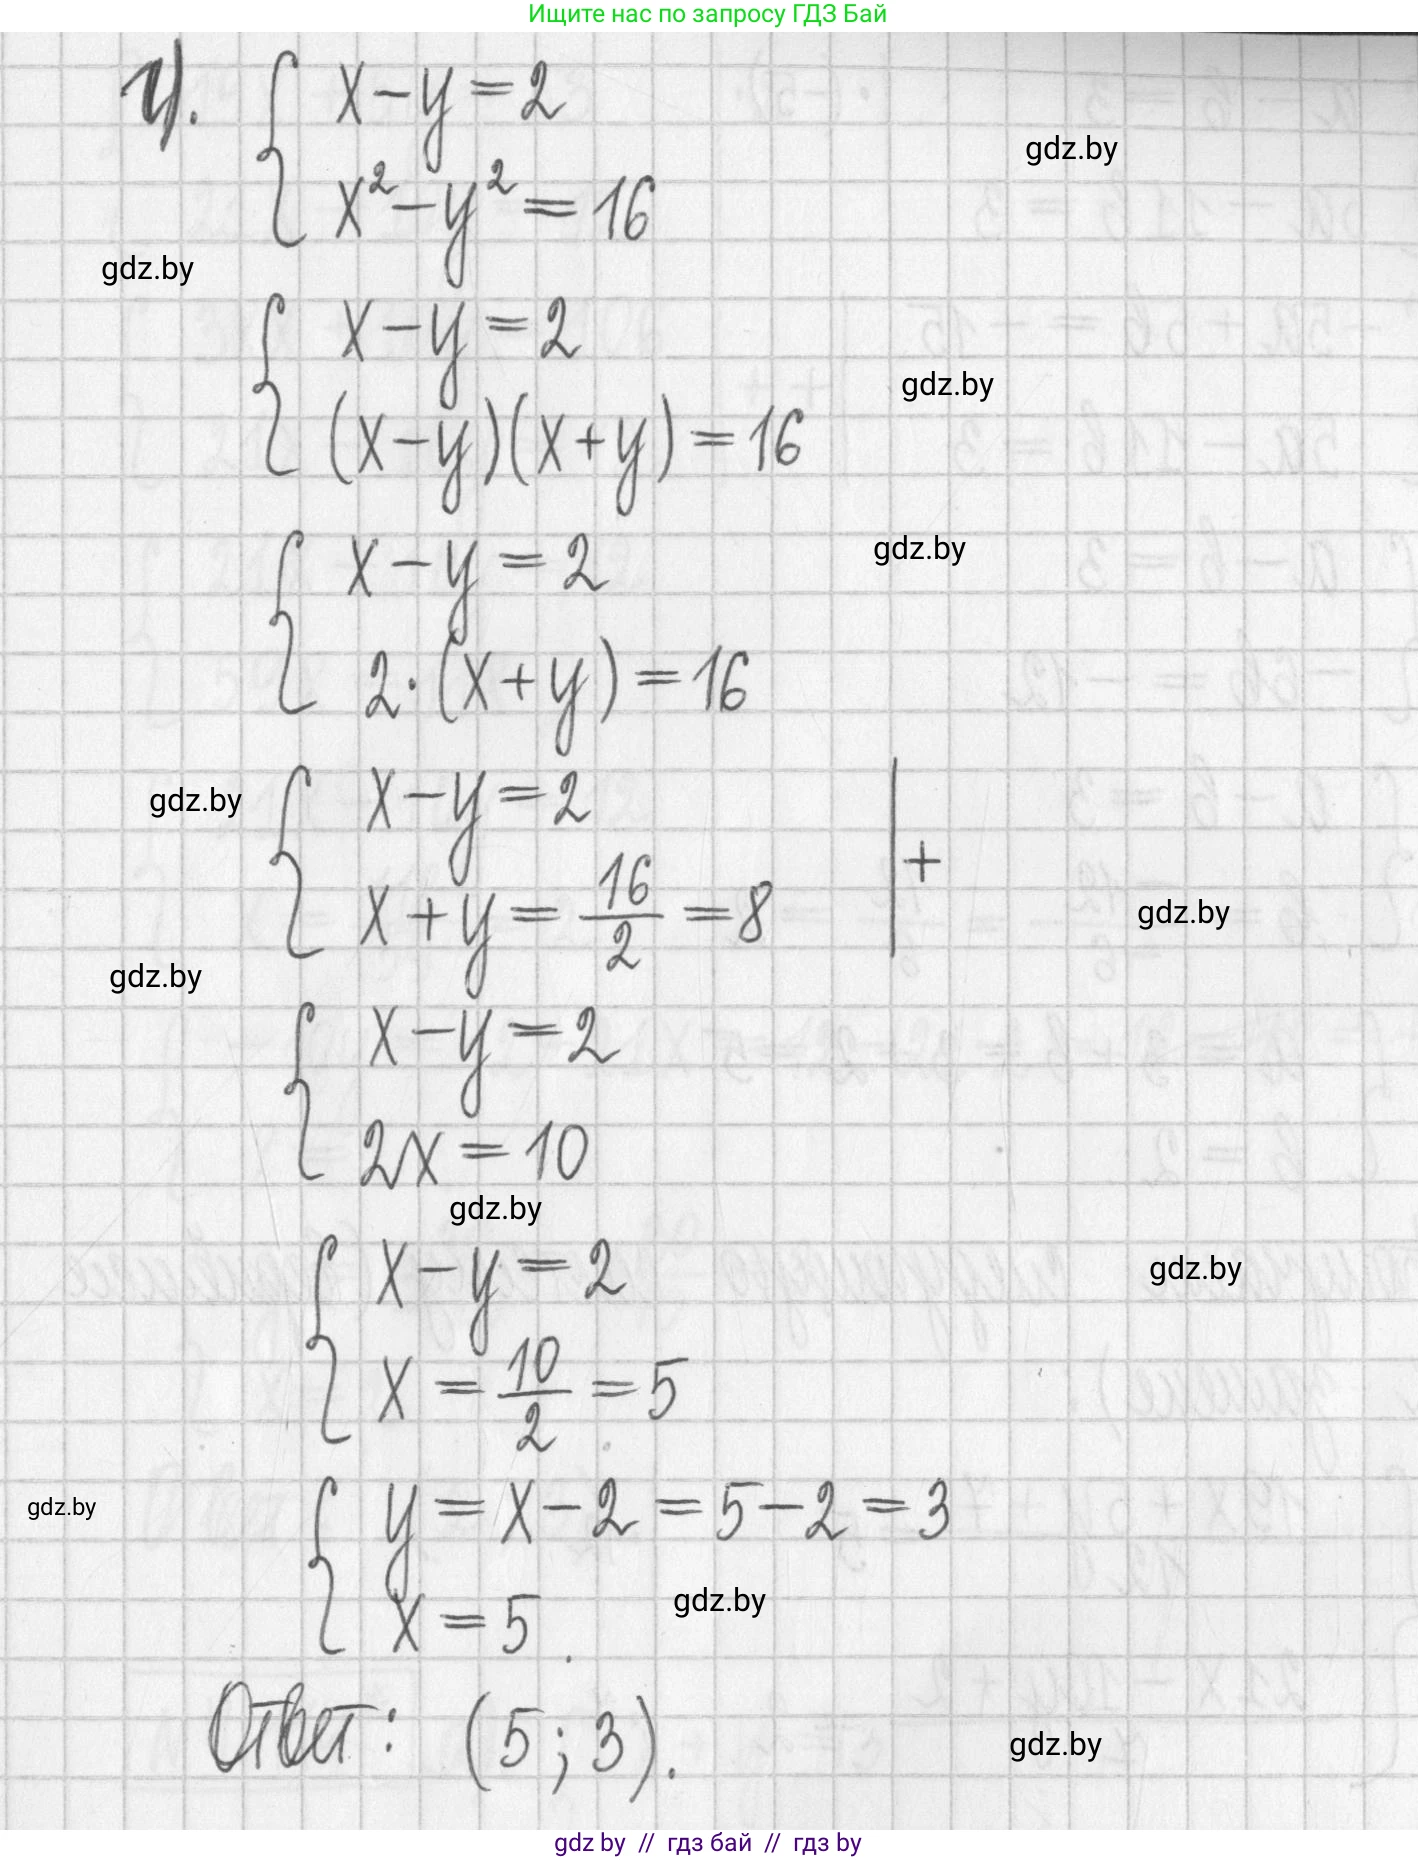 Ищите нас по запросу ГДЗ Бай
г). { x-y=2
x²-y²=16
gdz.by
gdz.by
{ x-y=2
(x-y)(x+y)=16
gdz.by
{ x-y=2
2·(x+y)=16
gdz.by
{ x-y=2
x+y=16/2=8 |+
gdz.by
gdz.by
gdz.by
{ x-y=2
2x=10
gdz.by
{ x-y=2
x=10/2=5
gdz.by
{ y=x-2=5-2=3
x=5.
gdz.by
gdz.by
Ответ: (5;3).
gdz.by
gdz by // гдз бай // гдз by